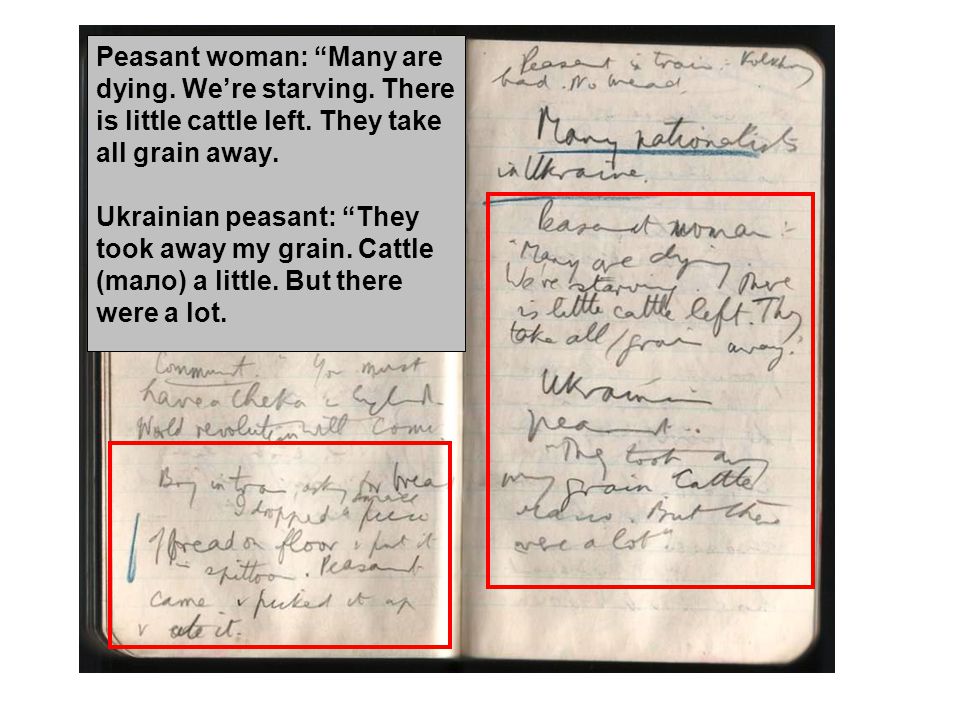 Peasant woman: “Many are
dying. We’re starving. There
is little cattle left. They take
all grain away.
Ukrainian peasant: “They
took away my grain. Cattle
(mало) a little. But there
were a lot.
Communist." You must
have a Cheka in England.
World revolution will come.
Boy in train, asking for bread
I dropped a small piece
of bread on floor & put it
in spittoon. Peasant
came & picked it up
& ate it.
Peasant in train :- Kolkhoz
bad. No bread.
Many nationalists
in Ukraine.
Peasant woman :-
"Many are dying.
We're starving. There
is little cattle left. They
take all grain away."
Ukrainian
peasant :-
"They took away
my grain. Cattle
мало. But there
were a lot".